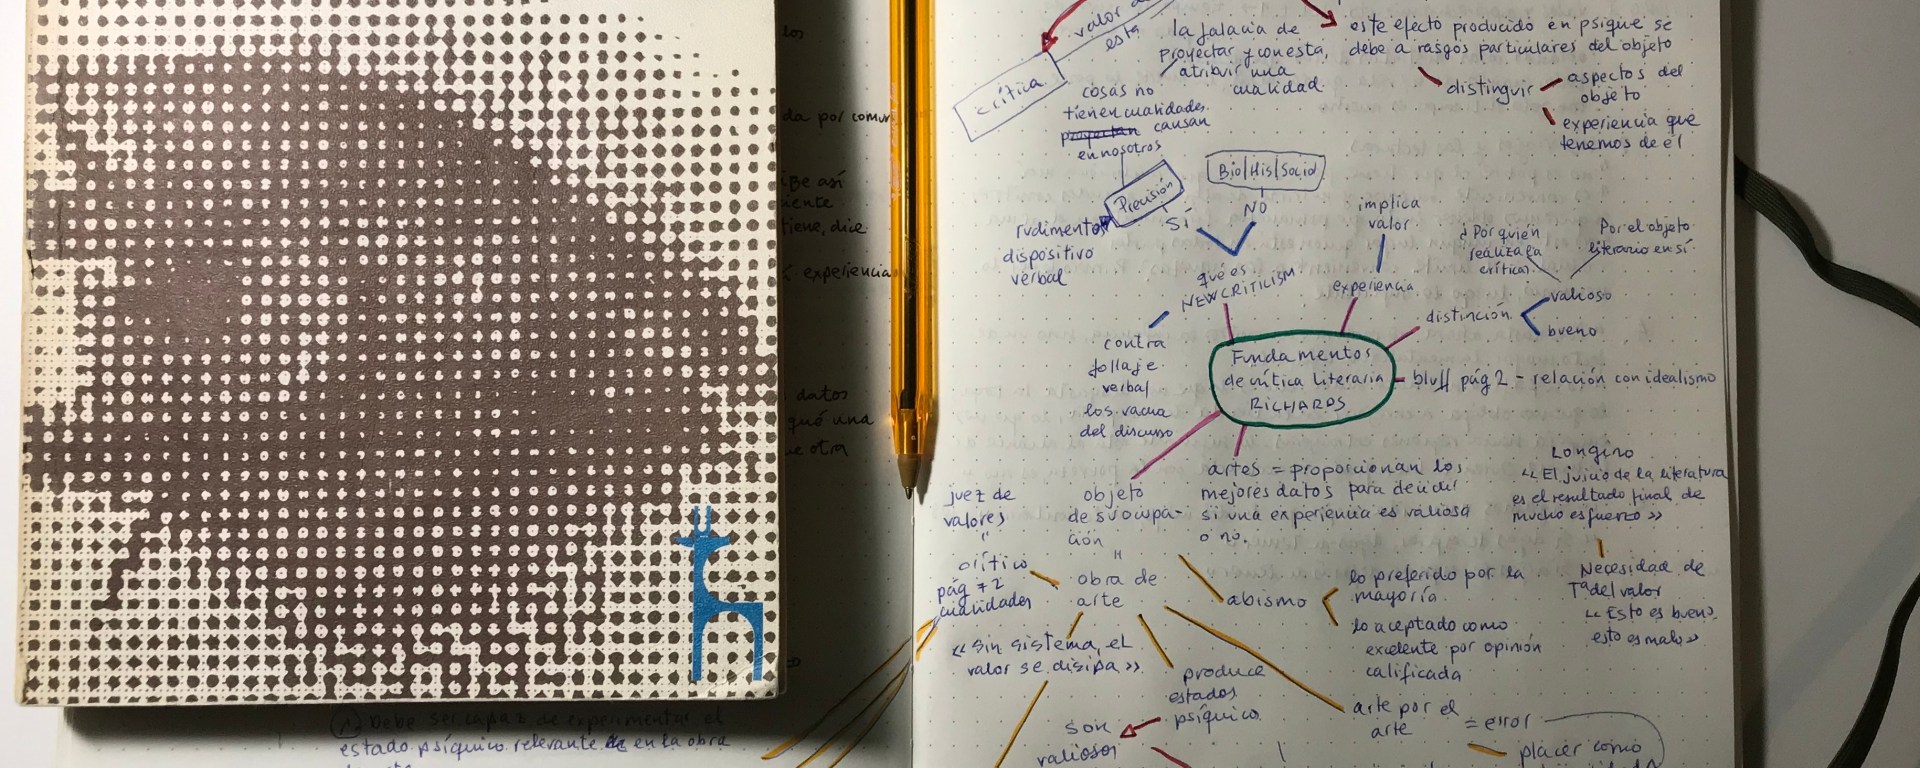 los
da por comun
ibe así
tiene, dice
experiencia
datos
qué una
ue otra
1) Debe ser capaz de experimentar el
estado psíquico relevante en la obra
valor de
esta
crítica
la falacia de
proyectar y con esta,
atribuir una
cualidad
cosas no
tienen cualidades
causan
en nosotros
este efecto producido en psique se
debe a rasgos particulares del objeto
distinguir
aspectos del
objeto
experiencia que
tenemos de él
Precisión
Bio/His/Sociol
Sí
NO
rudimentos
dispositivo
verbal
qué es
NEW CRITICISM
implica
valor
experiencia
¿Por quién
realiza la
crítica?
Por el objeto
literario en sí
distinción
valioso
bueno
contra
follaje
verbal
los vacua
del discurso
Fundamentos
de crítica literaria
RICHARDS
bluff pág 2 - relación con idealismo
artes = proporcionan los
mejores datos para decidir
si una experiencia es valiosa
o no.
Longino
«El juicio de la literatura
es el resultado final de
mucho esfuerzo»
Necesidad de
Tª del valor
«Esto es bueno,
esto es malo»
juez de
valores
"
crítico
pág 72
cualidades
objeto
de su ocupa-
ción
"
obra de
arte
abismo
lo preferido por la
mayoría
lo aceptado como
excelente por opinión
calificada
«Sin sistema, el
valor se disipa»
produce
estados
psíquico
son
valiosos
arte por el
arte
= error
placer como